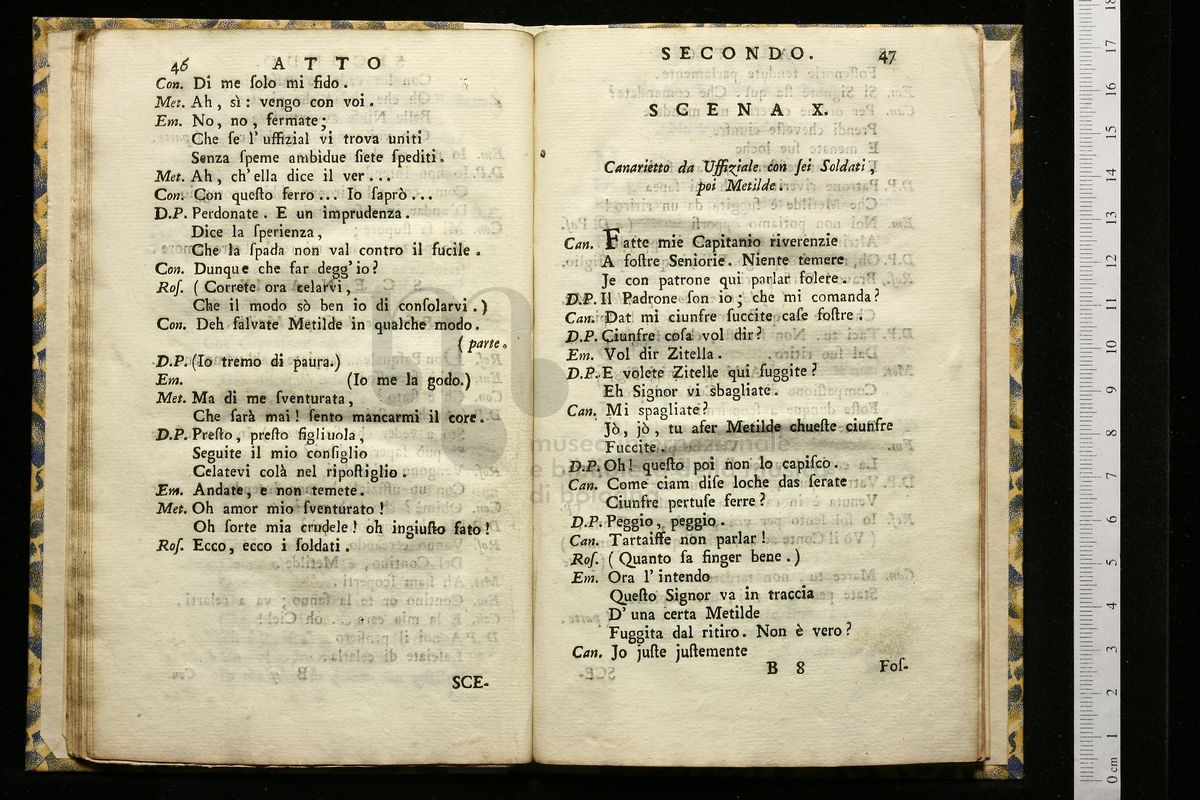 46 ATTO
Con. Di me ſolo mi fido.
Met. Ah, sì: vengo con voi.
Em. No, no, fermate;
Che ſe l'uffizial vi trova uniti
Senza ſpeme ambidue ſiete ſpediti.
Met. Ah, ch'ella dice il ver...
Con. Con queſto ferro... Io ſaprò...
D.P. Perdonate. E un imprudenza.
Dice la ſperienza,
Che la ſpada non val contro il fucile.
Con. Dunque che far degg'io?
Roſ. (Correte ora celarvi,
Che il modo sò ben io di conſolarvi.)
Con. Deh ſalvate Metilde in qualche modo.
(parte.
D.P. (Io tremo di paura.)
Em. (Io me la godo.)
Met. Ma di me ſventurata,
Che ſarà mai! ſento mancarmi il core.
D.P. Preſto, preſto figliuola,
Seguite il mio conſiglio
Celatevi colà nel ripoſtiglio.
Em. Andate, e non temete.
Met. Oh amor mio ſventurato!
Oh ſorte mia crudele! oh ingiuſto fato!
Roſ. Ecco, ecco i ſoldati.
SCE-
SECONDO. 47
SCENA X.
Canarietto da Uffiziale con ſei Soldati,
poi Metilde.
Can. Fatte mie Capitanio riverenzie
A foſtre Seniorie. Niente temere
Je con patrone qui parlar folere.
D.P. Il Padrone ſon io; che mi comanda?
Can. Dat mi ciunfre fuccite caſe foſtre.
D.P. Ciunfre! coſa vol dir?
Em. Vol dir Zitella.
D.P. E volete Zitelle qui fuggite?
Eh Signor vi sbagliate.
Can. Mi spagliate?
Jò, jò, tu afer Metilde chueſte ciunfre
Fuccite.
D.P. Oh! queſto poi non lo capiſco.
Can. Come ciam diſe loche das ſerate
Ciunfre pertuſe ferre?
D.P. Peggio, peggio.
Can. Tartaiffe non parlar!
Roſ. (Quanto ſa finger bene.)
Em. Ora l'intendo
Queſto Signor va in traccia
D'una certa Metilde
Fuggita dal ritiro. Non è vero?
Can. Jo juſte juſtemente
B 8 Foſ-